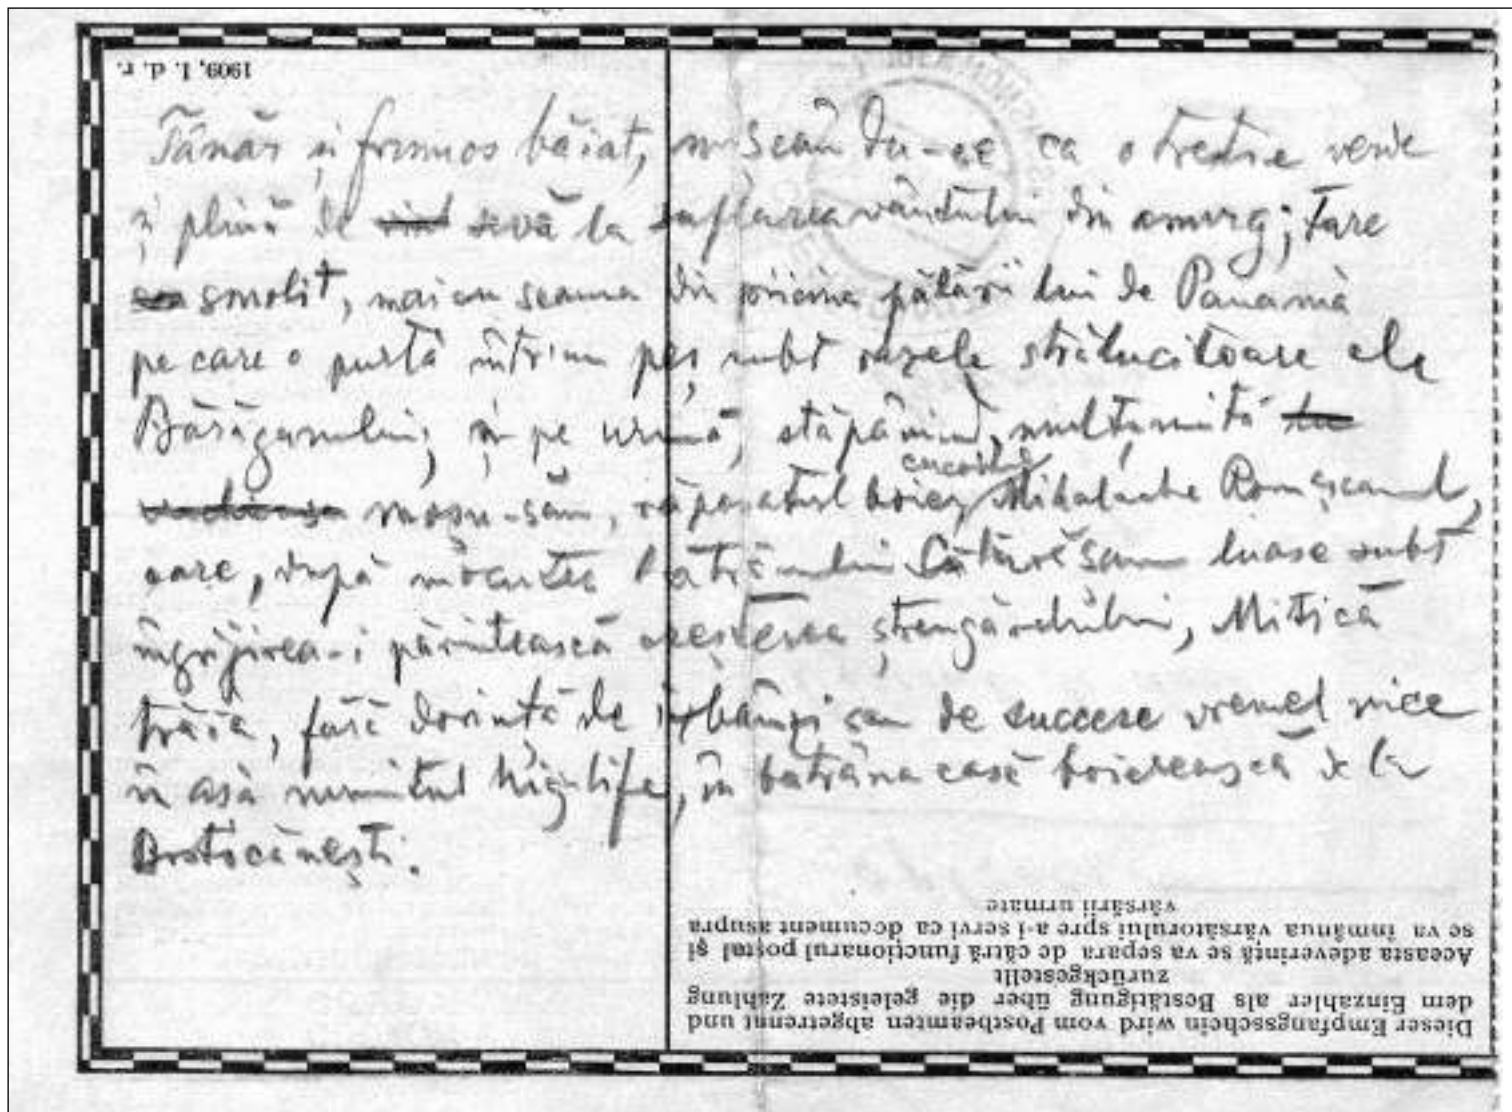 1909, I. d. r.
Tânăr și frumos băiat, mișcându-se ca o trestie verde
și plină de sevă la suflarea vântului din amurg; tare
smolit, mai cu seama din pricina pălării lui de Panamà
pe care o purtà într'un peș subt razele strălucitoare ale
Bărăganului; și pe urmă, stăpânind, mulțumită
cuconul
moșu-său, răposatul boier Mihalache Romașcanul,
care, după moartea bătrânului luase subt
îngrijirea-i părintească creșterea ștrengărelului, Mitică
trăia, fără dorință de izbânzi sau de succese vremelnice
în așà numitul hig-life, în bătrâna casă boierească de la
Brotăcănești.
Dieser Empfangsschein wird vom Postbeamten abgetrennt und
dem Einzahler als Bestätigung über die geleistete Zahlung
zurückgestellt
Aceasta adeverință se va separa de cătră funcționarul poștal și
se va înmânua vărsătorului spre a-i servi ca document asupra
vărsării urmate